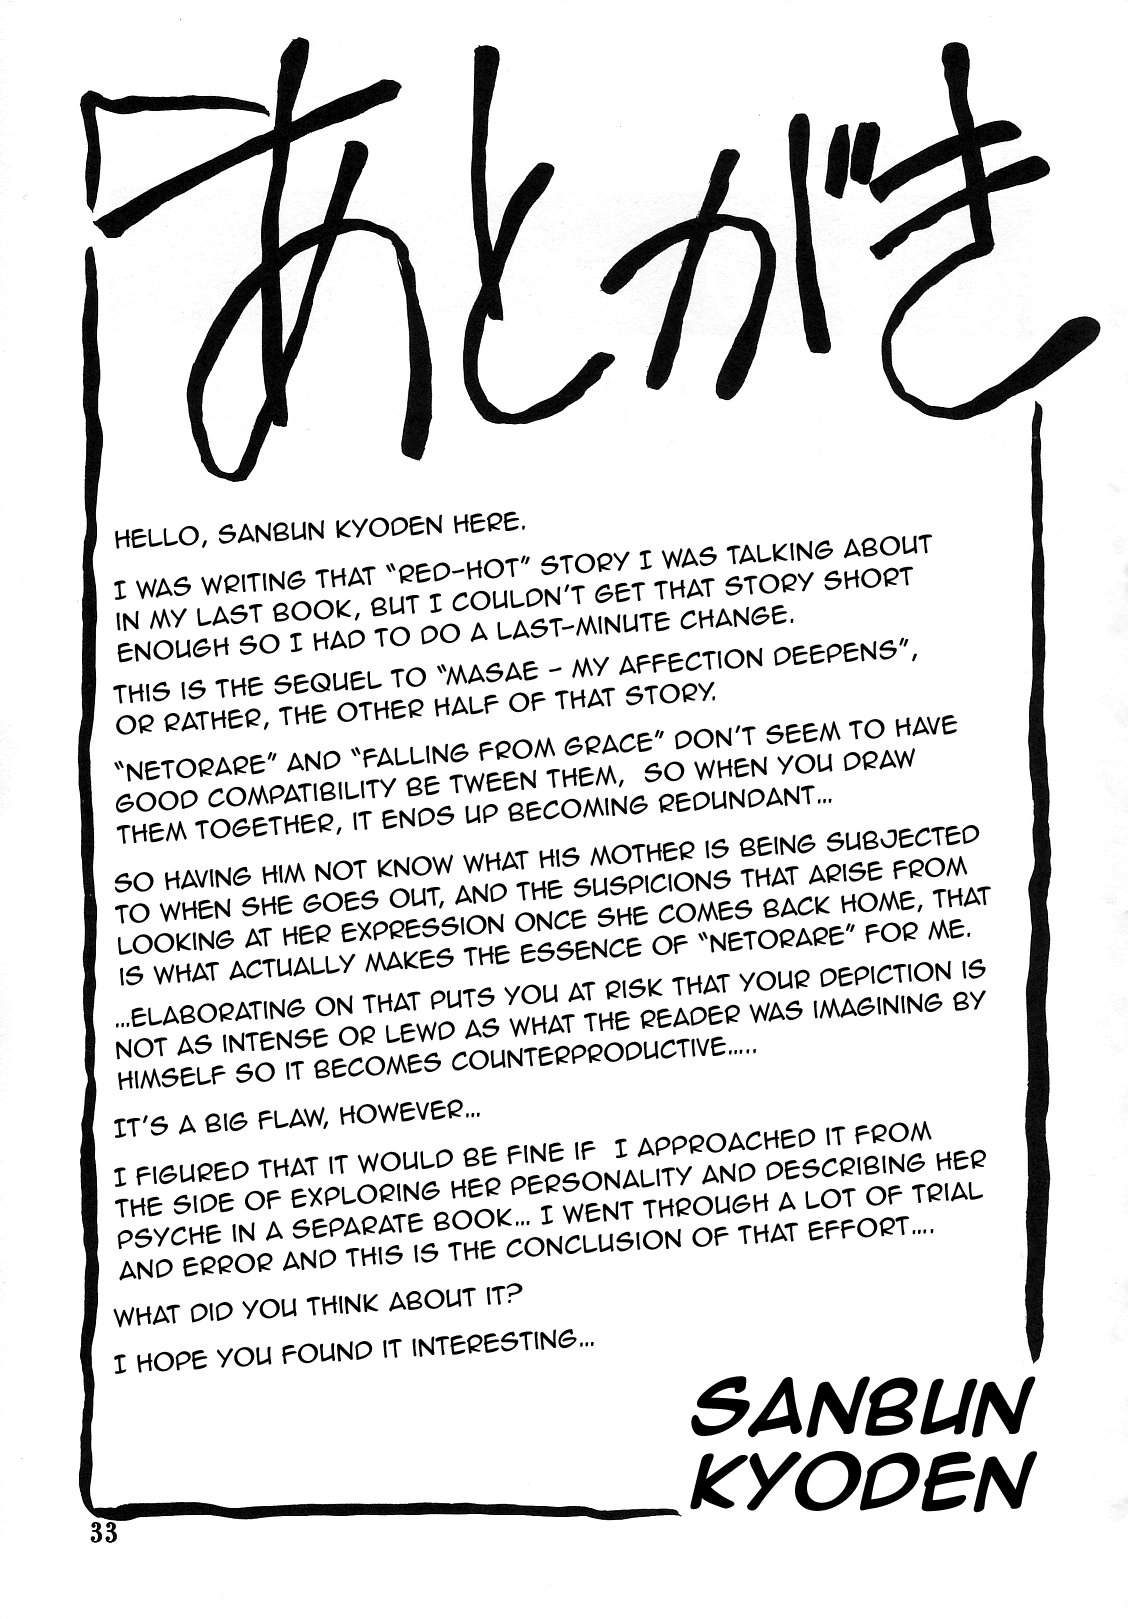 あとがき
HELLO, SANBUN KYODEN HERE.
I WAS WRITING THAT “RED-HOT” STORY I WAS TALKING ABOUT
IN MY LAST BOOK, BUT I COULDN'T GET THAT STORY SHORT
ENOUGH SO I HAD TO DO A LAST-MINUTE CHANGE.
THIS IS THE SEQUEL TO “MASAE - MY AFFECTION DEEPENS”,
OR RATHER, THE OTHER HALF OF THAT STORY.
“NETORARE” AND “FALLING FROM GRACE” DON'T SEEM TO HAVE
GOOD COMPATIBILITY BE TWEEN THEM, SO WHEN YOU DRAW
THEM TOGETHER, IT ENDS UP BECOMING REDUNDANT...
SO HAVING HIM NOT KNOW WHAT HIS MOTHER IS BEING SUBJECTED
TO WHEN SHE GOES OUT, AND THE SUSPICIONS THAT ARISE FROM
LOOKING AT HER EXPRESSION ONCE SHE COMES BACK HOME, THAT
IS WHAT ACTUALLY MAKES THE ESSENCE OF “NETORARE” FOR ME.
...ELABORATING ON THAT PUTS YOU AT RISK THAT YOUR DEPICTION IS
NOT AS INTENSE OR LEWD AS WHAT THE READER WAS IMAGINING BY
HIMSELF SO IT BECOMES COUNTERPRODUCTIVE.....
IT'S A BIG FLAW, HOWEVER...
I FIGURED THAT IT WOULD BE FINE IF I APPROACHED IT FROM
THE SIDE OF EXPLORING HER PERSONALITY AND DESCRIBING HER
PSYCHE IN A SEPARATE BOOK... I WENT THROUGH A LOT OF TRIAL
AND ERROR AND THIS IS THE CONCLUSION OF THAT EFFORT....
WHAT DID YOU THINK ABOUT IT?
I HOPE YOU FOUND IT INTERESTING...
SANBUN
KYODEN
33